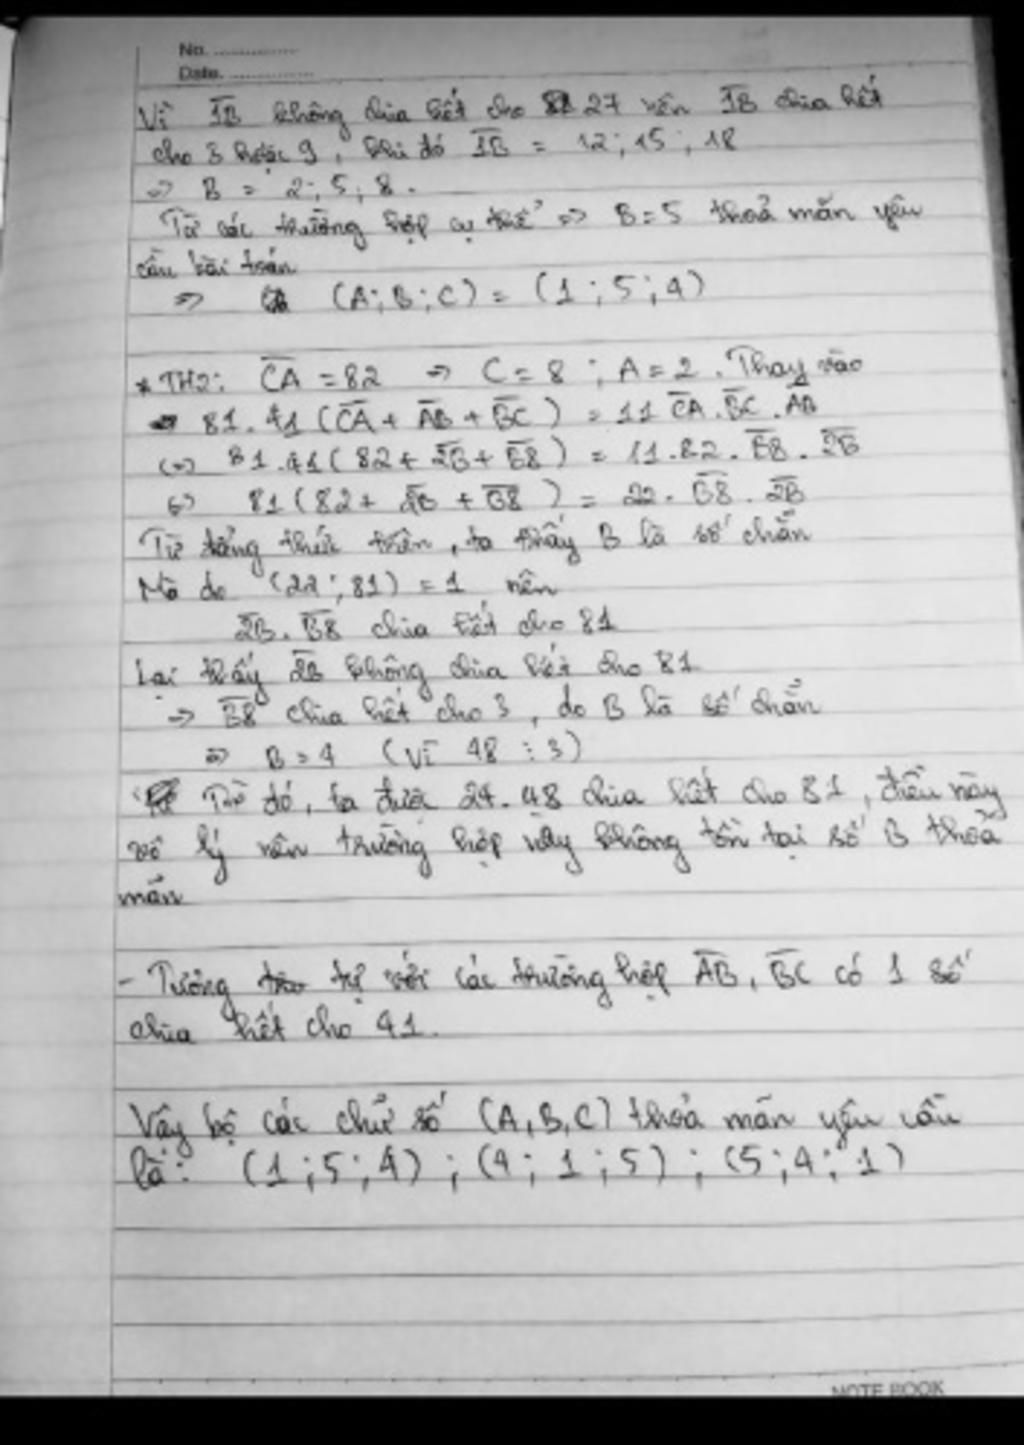 No. ................
Date. ................
Vì 1B không chia hết cho 27 nên 1B chia hết
cho 3 hoặc 9, khi đó 1B = 12; 15; 18
=> B = 2; 5; 8.
Từ các trường hợp cụ thể => B=5 thoả mãn yêu
cầu bài toán
=> (A; B; C) = (1; 5; 4)
* TH2: CA = 82 => C = 8; A = 2. Thay vào
81.41 (CA + AB + BC) = 11 CA.BC.AB
<=> 81.41 (82 + 2B + B8) = 11.82.B8.2B
<=> 81 (82 + 2B + B8) = 22.B8.2B
Từ đẳng thức trên, ta thấy B là số chẵn
Mà do (22; 81) = 1 nên
2B.B8 chia hết cho 81
Lại thấy 2B không chia hết cho 81
=> B8 chia hết cho 3, do B là số chẵn
=> B = 4 (Vì 48 ⋮ 3)
Từ đó, ta được 24.48 chia hết cho 81, điều này
vô lý nên trường hợp này không tồn tại số B thoả
mãn
- Tương tự với các trường hợp AB, BC có 1 số
chia hết cho 41.
Vậy bộ các chữ số (A, B, C) thoả mãn yêu cầu
là: (1; 5; 4); (4; 1; 5); (5; 4; 1)
NOTE BOOK